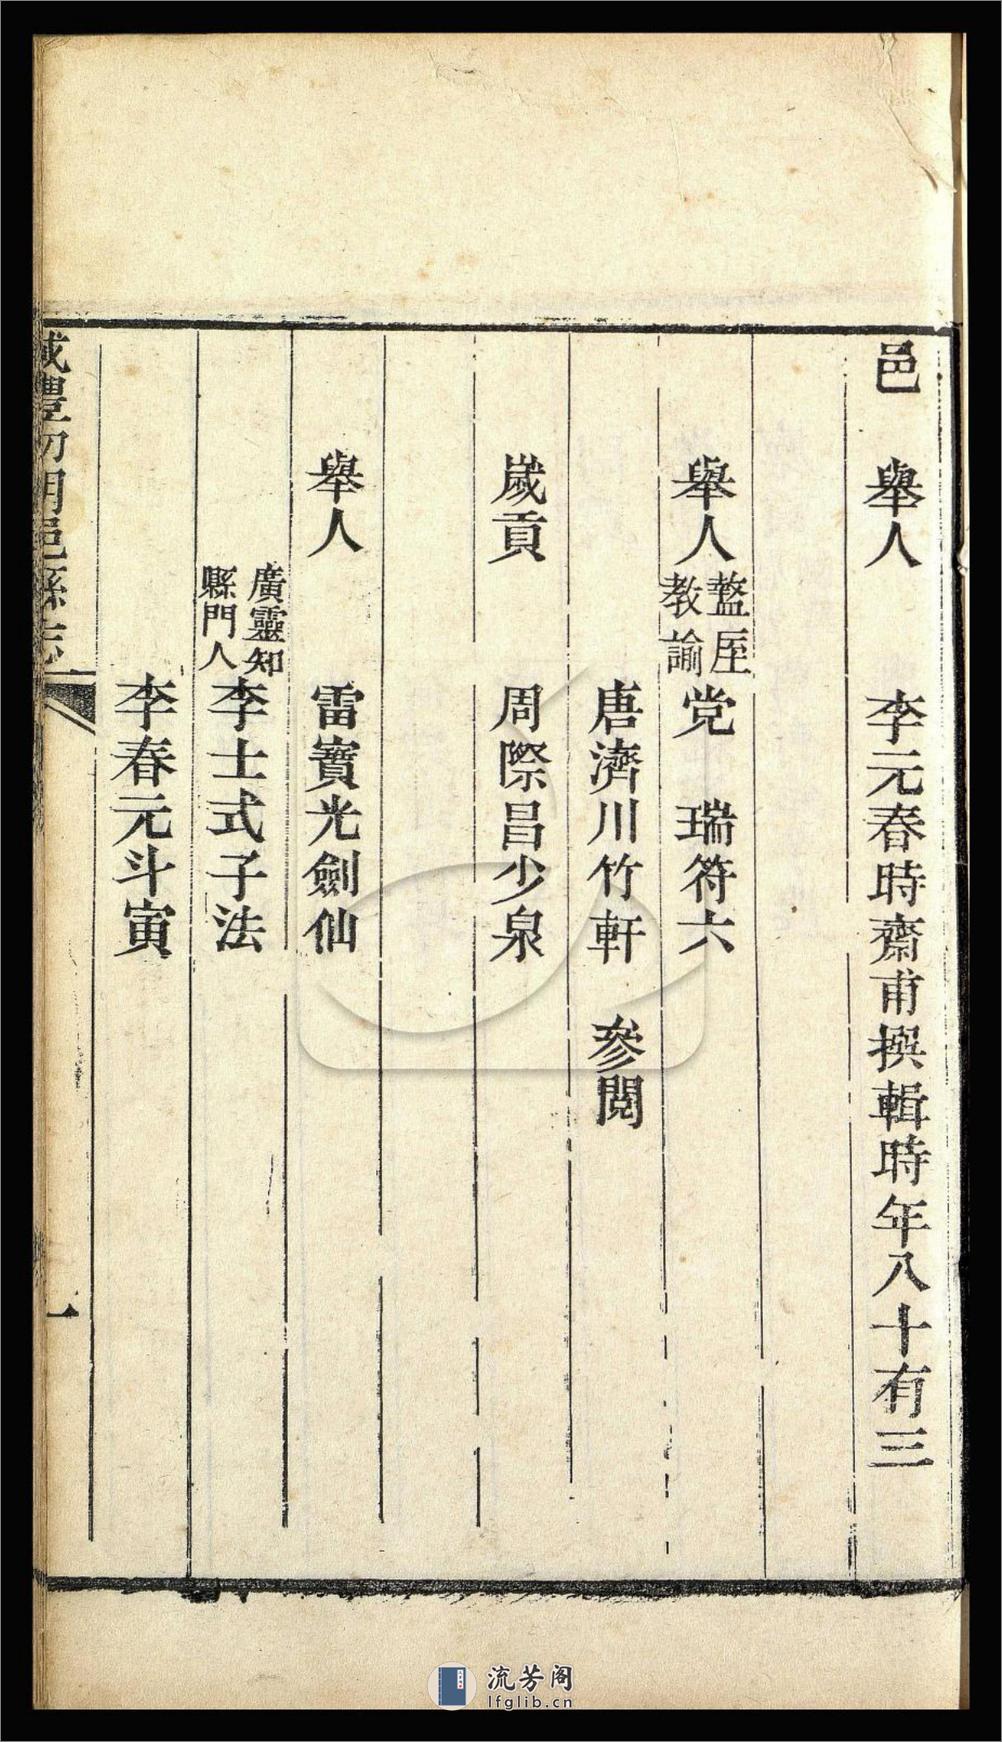 邑　舉人　李元春時齋甫撰輯時年八十有三
舉人盩厔教諭党　瑞符六
唐濟川竹軒　參閱
歲貢　周際昌少泉
舉人　雷寶光劍仙
廣靈知縣門人李士式子法
李春元斗寅
咸豐初朝邑縣志
流芳阁
lfglib.cn